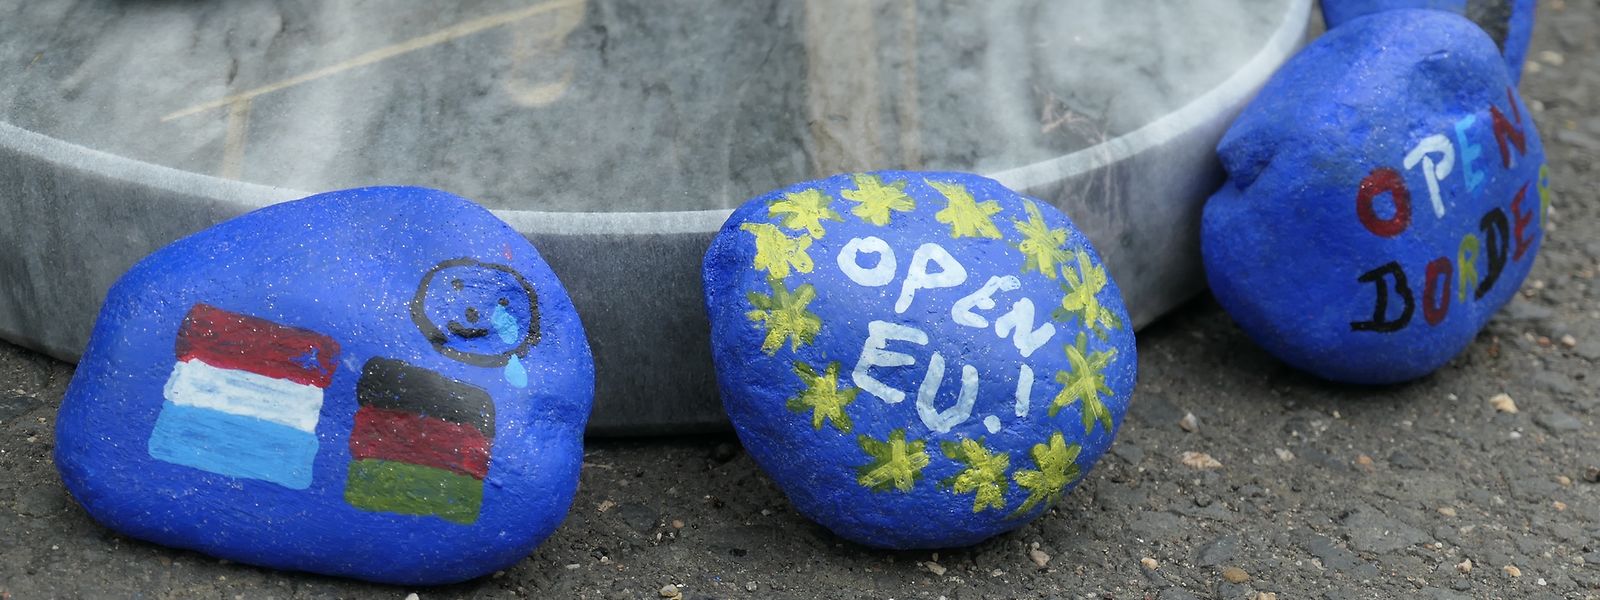 OPEN
EU.!
OPEN
BORDER